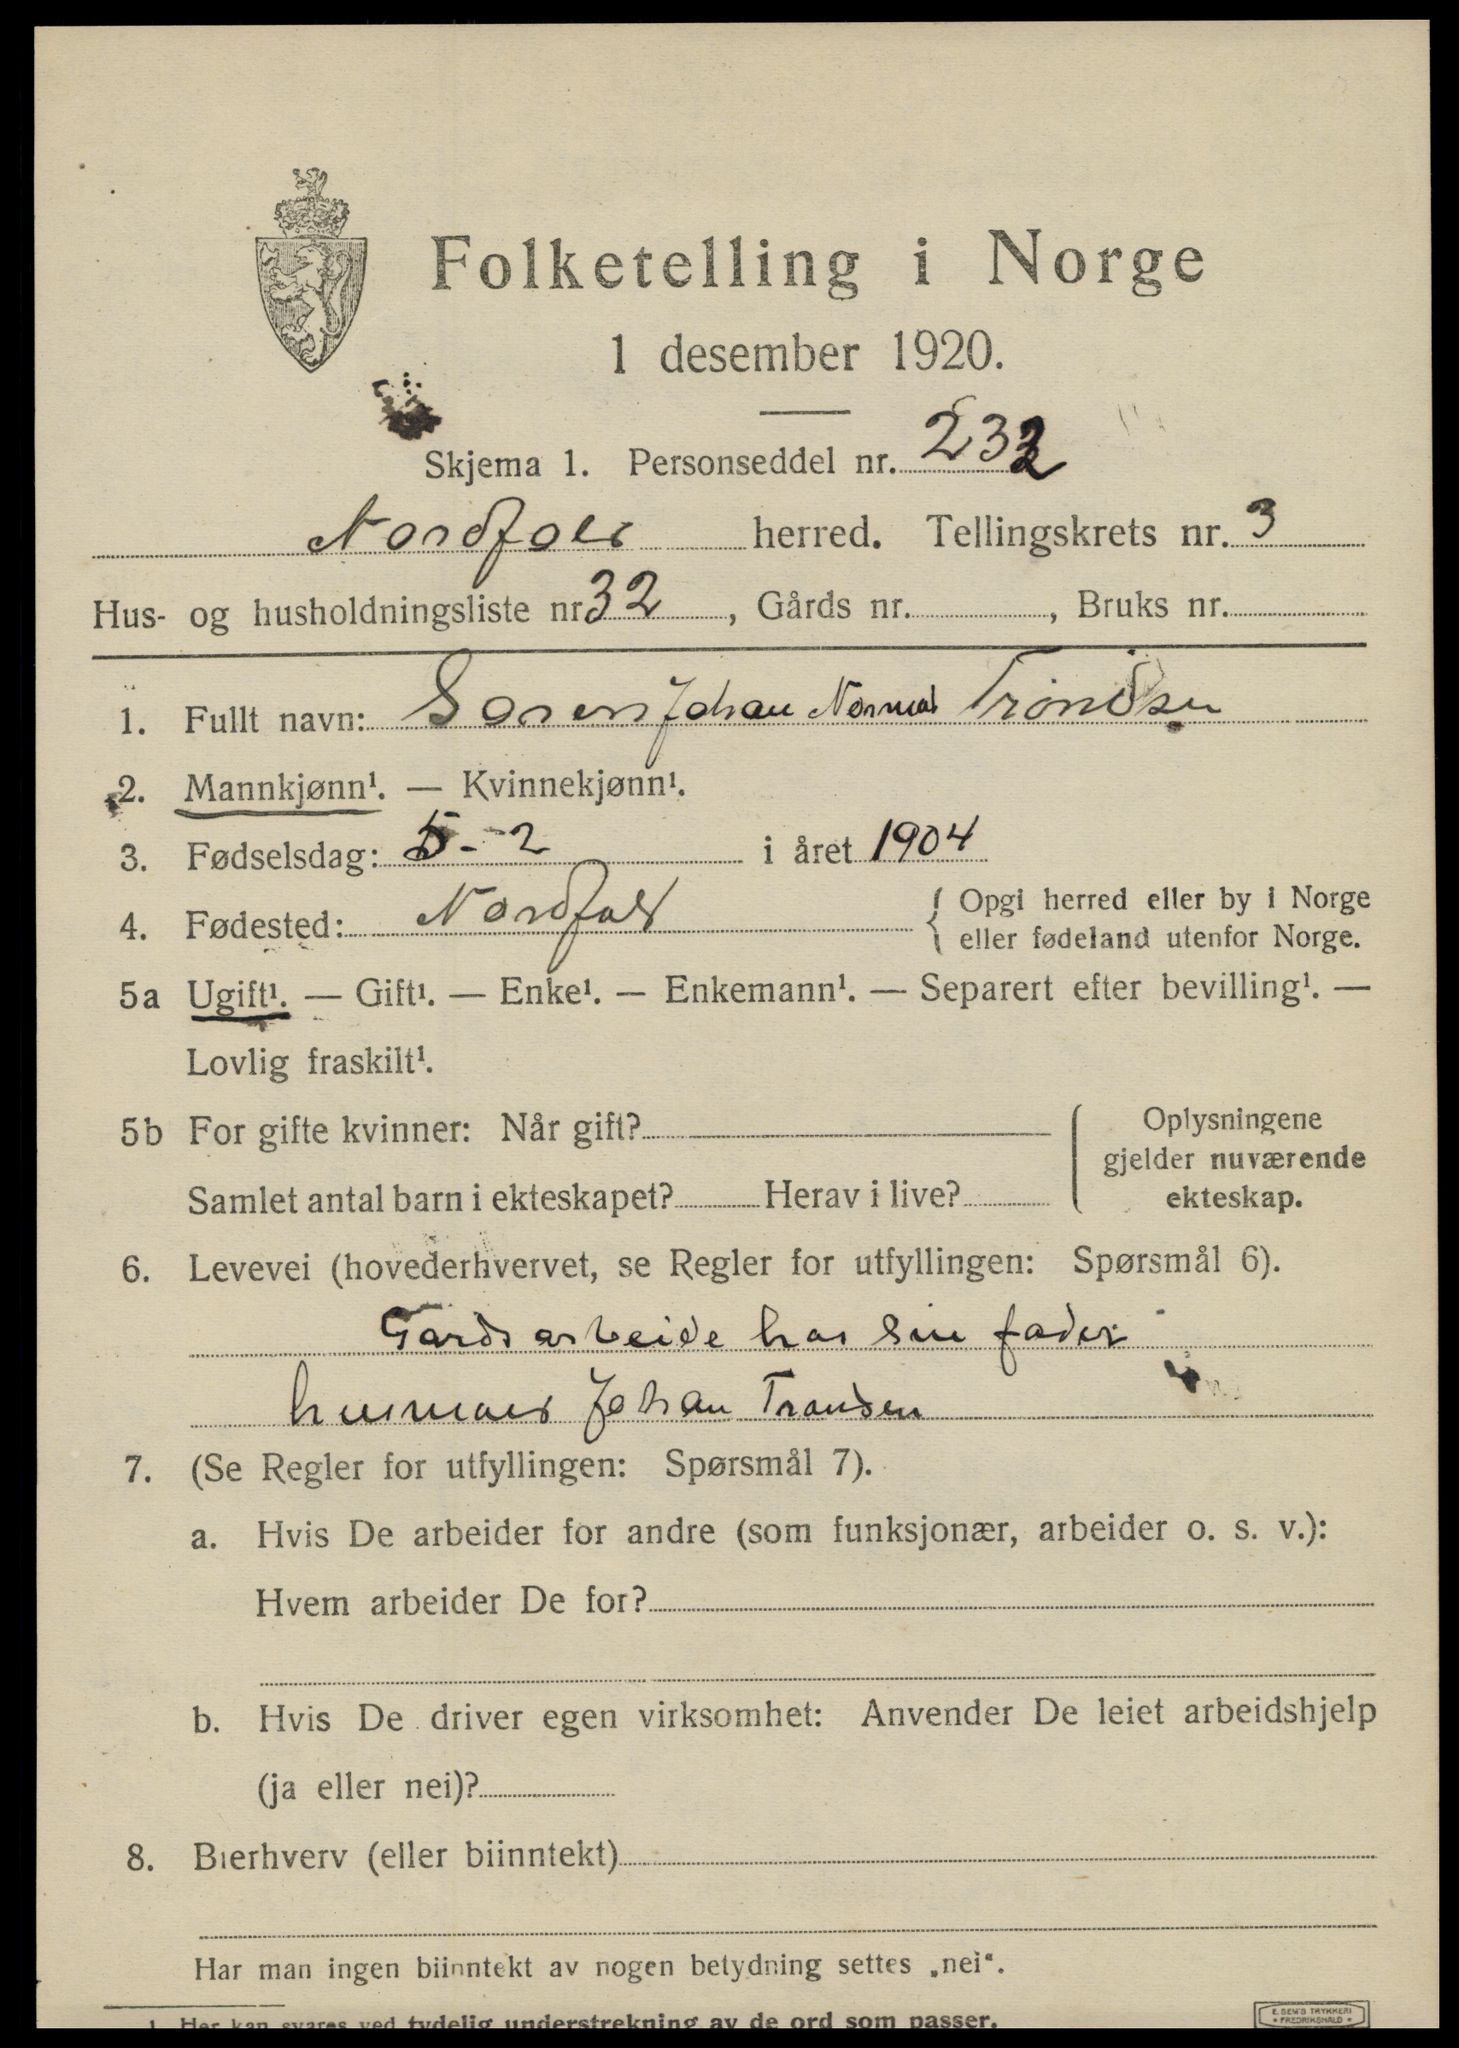 Folketelling i Norge
1 desember 1920.
Skjema 1. Personseddel nr. 232
Nordfold herred. Tellingskrets nr. 3
Hus- og husholdningsliste nr 32, Gårds nr. , Bruks nr.
1. Fullt navn: Soren Johan Normal Trondsen
2. Mannkjønn¹. — Kvinnekjønn¹.
3. Fødselsdag: 5-2 i året 1904
4. Fødested: Nordfold { Opgi herred eller by i Norge
eller fødeland utenfor Norge.
5a Ugift¹. — Gift¹. — Enke¹. — Enkemann¹. — Separert efter bevilling¹. —
Lovlig fraskilt¹.
5b For gifte kvinner: Når gift? { Oplysningene
gjelder nuværende
Samlet antal barn i ekteskapet? Herav i live? ekteskap.
6. Levevei (hovederhvervet, se Regler for utfyllingen: Spørsmål 6).
Gardsarbeide hos sin fader
Johan Trondsen
7. (Se Regler for utfyllingen: Spørsmål 7).
a. Hvis De arbeider for andre (som funksjonær, arbeider o. s. v.):
Hvem arbeider De for?
b. Hvis De driver egen virksomhet: Anvender De leiet arbeidshjelp
(ja eller nei)?
8. Bierhverv (eller biinntekt)
Har man ingen biinntekt av nogen betydning settes „nei“.
1 Her kan svares ved tydelig understrekning av de ord som passer.
E. SEM'S TRYKKERI
* FREDRIKSHALD *